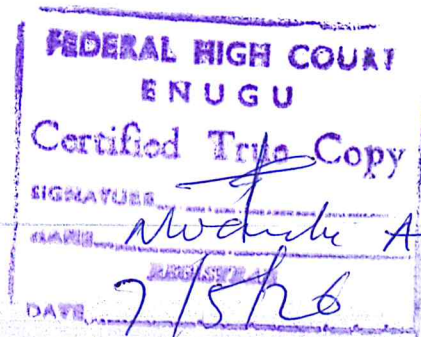 FEDERAL HIGH COURT
ENUGU
Certified True Copy
SIGNATURE
NAME A
REGISTRAR
DATE 7/5/26